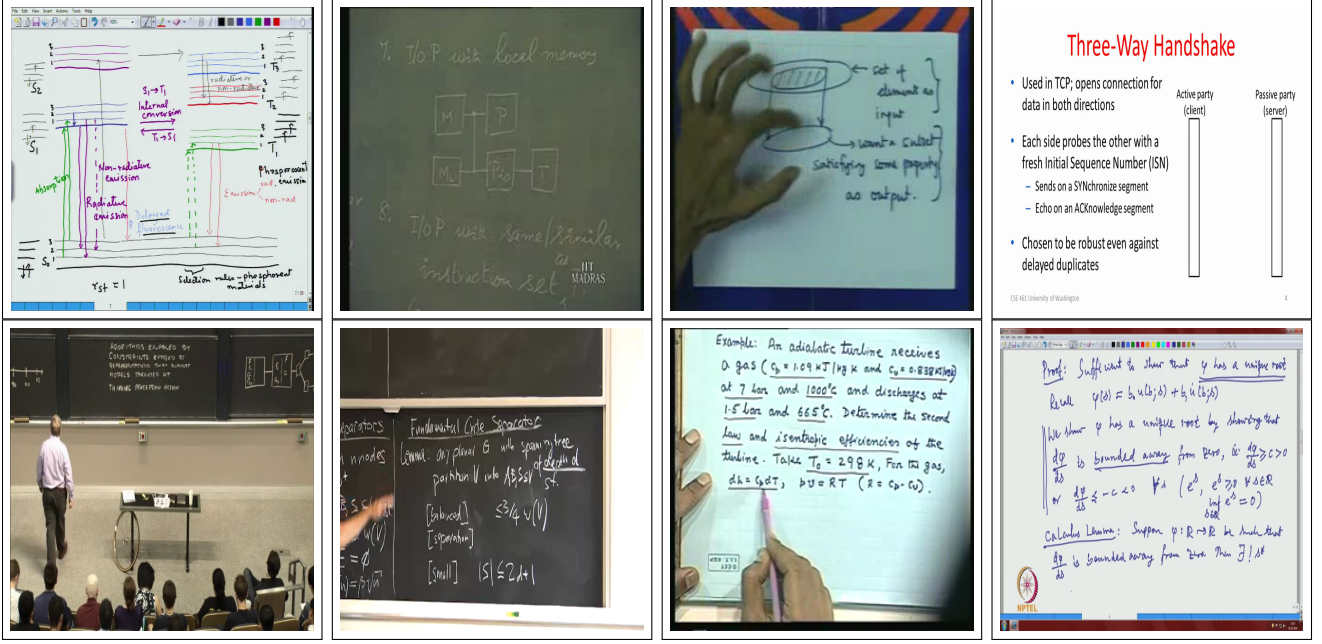 File Edit View Insert Actions Tools Help
S2
S1
S0
T3
T2
T1
radiative or
non-radiative
S1→T1
Internal
conversion
T1→S1
Absorption
Non-radiative
emission
Radiative
emission
Delayed
fluorescence
Emission
rad.
non-rad
Phosphorescent
emission
rst = 1
Selection rules - phosphorent
materials
7. I/O P with local memory
M
P
ML
T
8.
I/O P with same/similar
instruction set
IIT
MADRAS
← set of
elements as
input
→ want a subset
satisfying some property
as output.
Three-Way Handshake
• Used in TCP; opens connection for
data in both directions
• Each side probes the other with a
fresh Initial Sequence Number (ISN)
– Sends on a SYNchronize segment
– Echo on an ACKnowledge segment
• Chosen to be robust even against
delayed duplicates
Active party
(client)
Passive party
(server)
CSE 461 University of Washington
4
ALGORITHMS ENABLED BY
CONSTRAINTS EXPOSED BY
REPRESENTATIONS THAT SUPPORT
MODELS TARGETED AT
THINKING PERCEPTION ACTION
eparators
n nodes
= ∅
Fundamental Cycle Separator
Lemma: any planar G with spanning tree
of depth d
partition V into A,B,S≤V st.
[balanced] ≤3/4 w(V)
[separation]
[small] |S| ≤ 2d+1
Example: An adiabatic turbine receives
a gas (cp = 1.09 kJ/kg K and cv = 0.838 kJ/kgK)
at 7 bar and 1000°C and discharges at
1.5 bar and 665°C. Determine the second
law and isentropic efficiencies of the
turbine. Take T0 = 298 K, For the gas,
dh = cpdT, pv = RT (R = cp - cv).
Proof: Sufficient to show that φ has a unique root
Recall φ(s) = b0 u(b;s) + b1 u̇(b;s)
We show φ has a unique root by showing that
dφ/ds is bounded away from zero, ie dφ/ds ≥ c > 0
or dφ/ds ≤ -c < 0 ∀s (e^s, e^s ≥ 0 ∀ s∈R
inf e^s = 0)
s∈R
Calculus Lemma: Suppose φ: R → R be such that
dφ/ds is bounded away from zero then ∃! s*
NPTEL